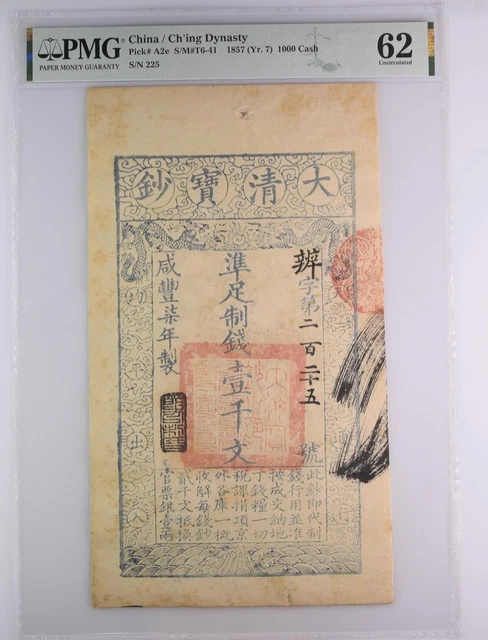 PMG
PAPER MONEY GUARANTY
China / Ch'ing Dynasty
Pick# A2e S/M#T6-41 1857 (Yr. 7) 1000 Cash
S/N 225
62
Uncirculated
大清寶鈔
辨字第二百二十五號
準足制錢壹千文
咸豐柒年製
均平出入
此鈔即代制
錢行用並准
按成交納地
丁錢糧一切
稅課捐項京
外各庫一概
收解每錢鈔
貳千文抵換
官票銀壹兩